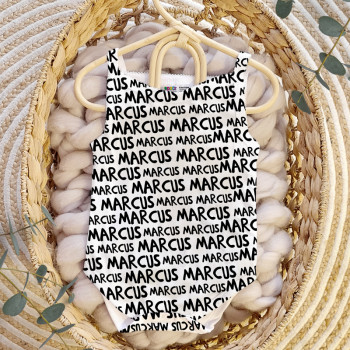 MARCUS
MARCUS MARCUS
MARCUS MARCUS MARCUS
MARCUS MARCUS MARCUS
MARCUS MARCUS MARCUS
MARCUS MARCUS MARCUS
MARCUS MARCUS MARCUS
MARCUS MARCUS MARCUS
MARCUS MARCUS MARCUS
MARCUS MARCUS MARCUS
MARCUS MARCUS MARCUS
MARCUS MARCUS MARCUS
MARCUS MARCUS MARCUS
MARCUS MARCUS MARCUS
MARCUS MARCUS MARCUS
MARCUS MARCUS
MARCUS